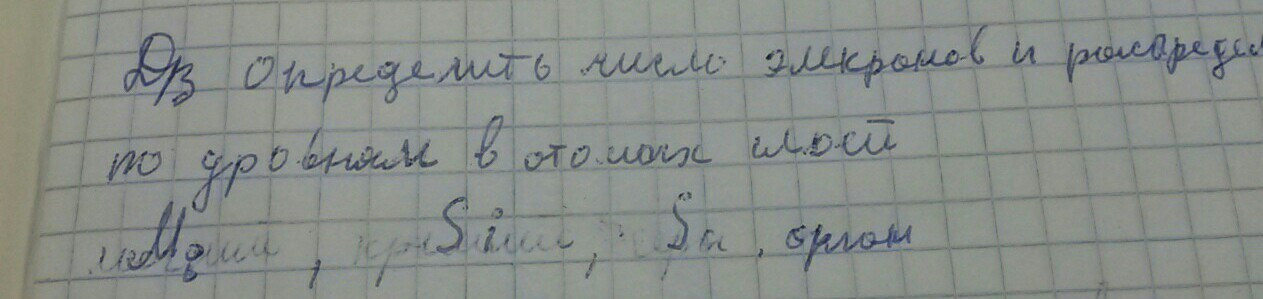 Д/з Определить число элекронов и распредел
по уровням в атомах
Mg , Si , S , аргон